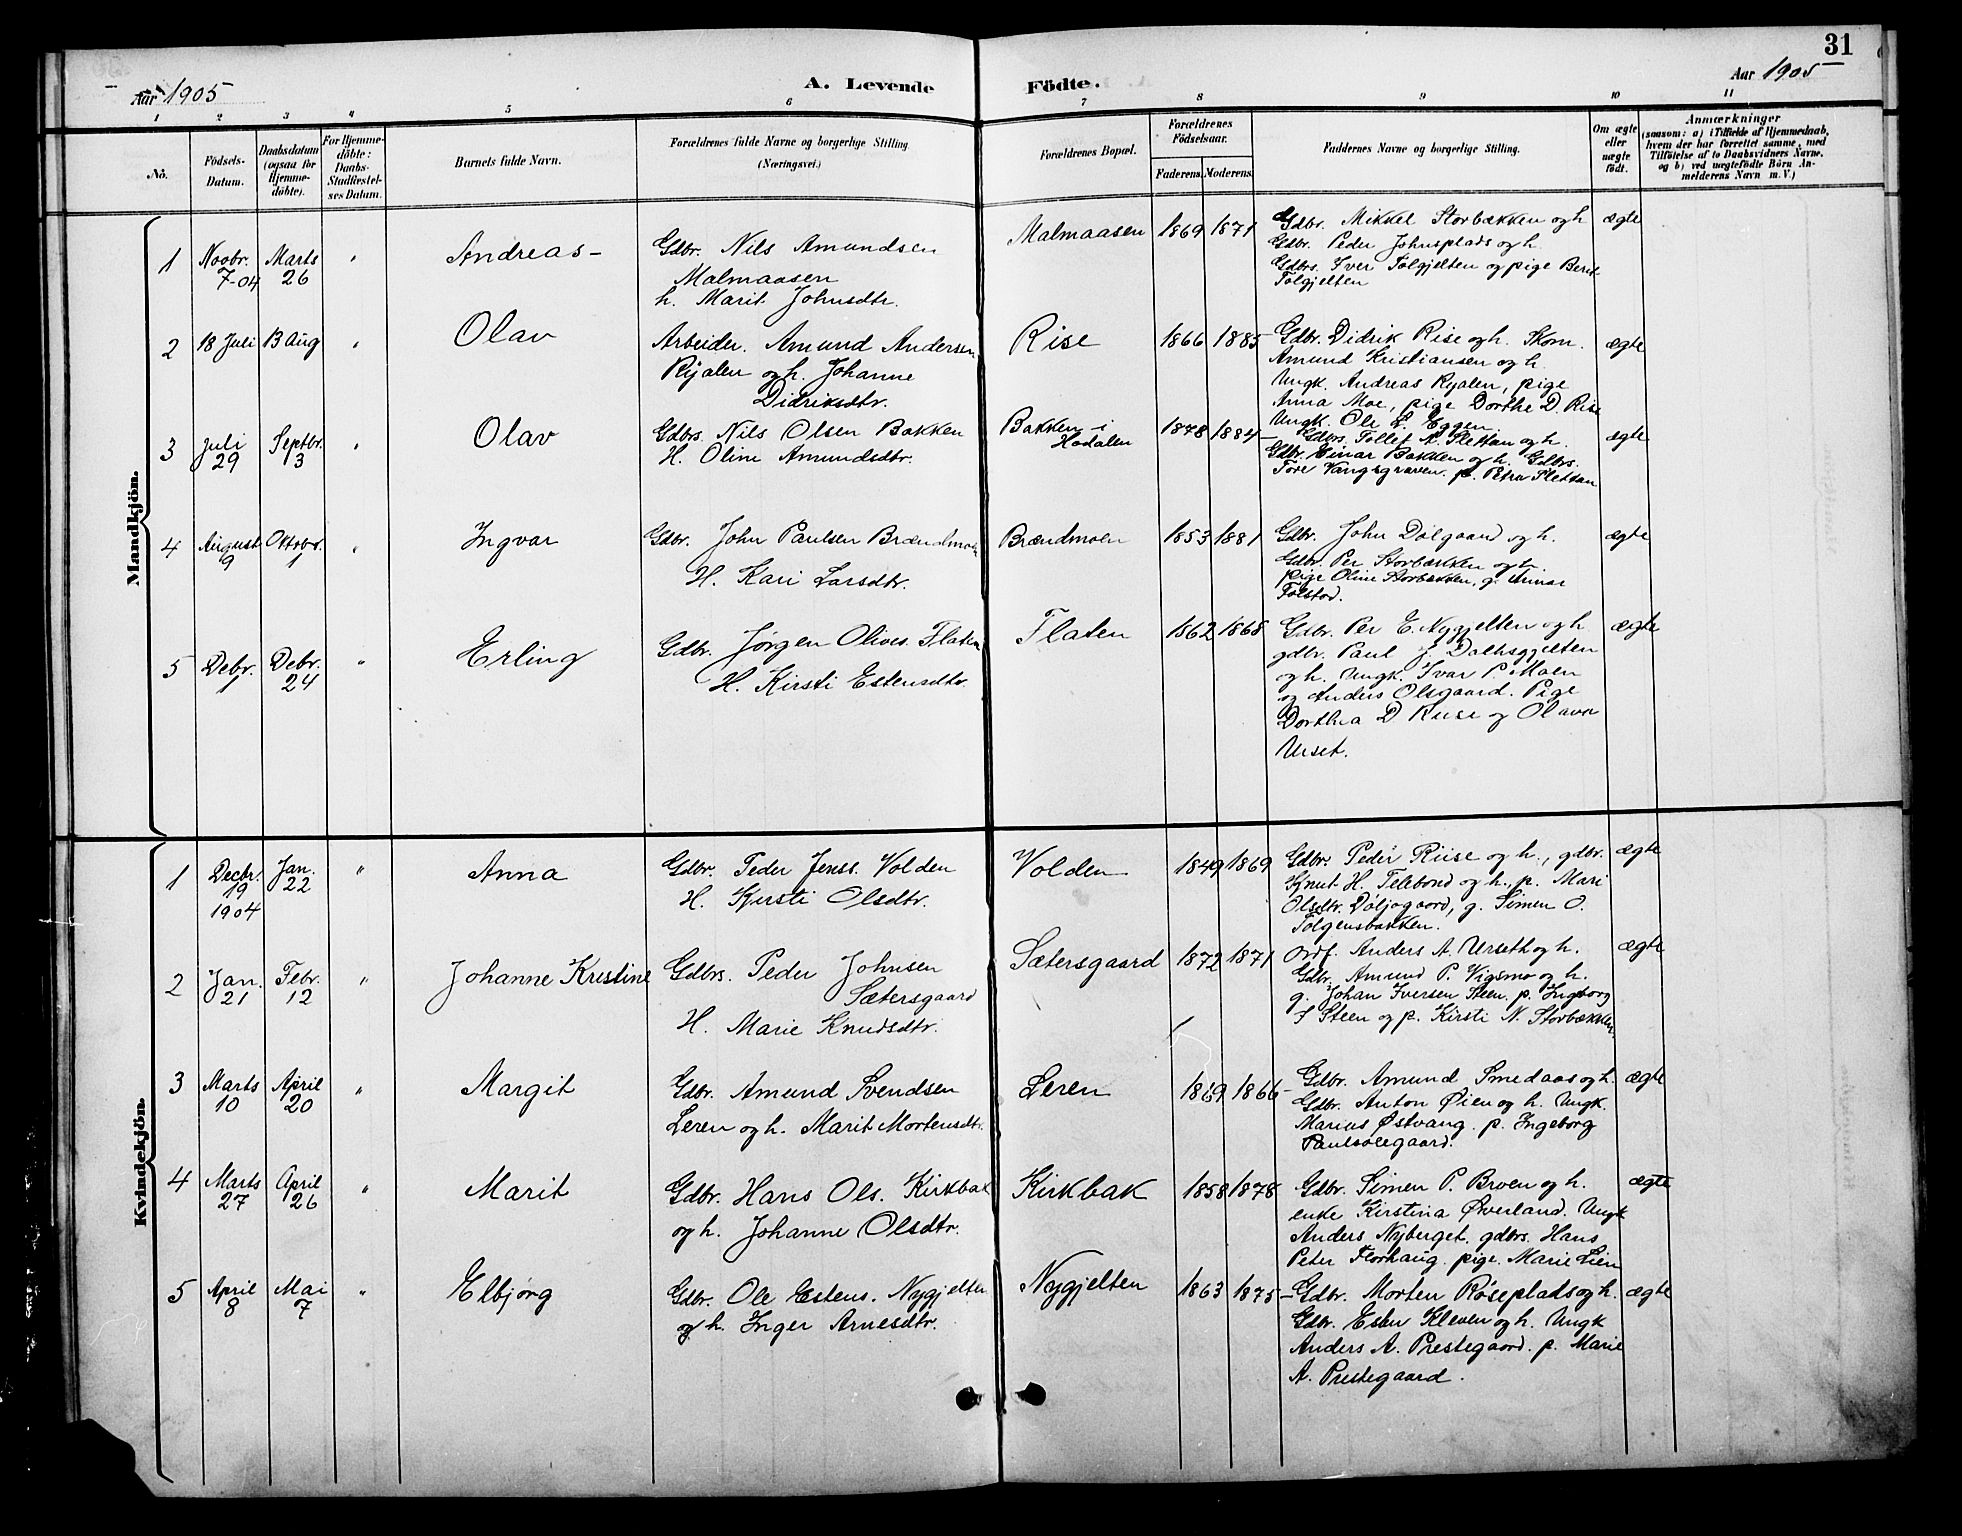 31
Aar 1905
A. Levende
Födte.
Aar 1905
1 2 3 4 5 6 7 8 9 10 11
No.
Födsels-
Datum.
Daabsdatum
(ogsaa for
Hjemme-
döbte).
For Hjemme-
döbte:
Daabs-
Stadfæstel-
ses Datum.
Barnets fulde Navn.
Forældrenes fulde Navne og borgerlige Stilling
(Næringsvei.)
Forældrenes Bopæl.
Forældrenes
Födselsaar.
Faderens. Moderens.
Faddernes Navne og borgerlige Stilling.
Om ægte
eller
uægte
födt.
Anmærkninger
(saasom: a) i Tilfælde af Hjemmedaab,
hvem der har forrettet samme, med
Tilföielse af to Daabsvidners Navne.
og b) ved uægtefödte Börn An-
melderens Navn m. V.)
Mandkjön.
1 Novbr. 7-04 Marts 26 " Andreas - Gdbr. Nils Amundsen
Malmaasen
h. Marit Johnsdtr.
Malmaasen 1869 1871 Gdbr. Mikkel Storbækken og h.
Gdbr. Peder Johnsplads og h.
Gdbrs. Iver Tolgjelten og pige Berit
Tolgjelten
ægte
2 18 Juli 13 Aug " Olav Arbeider. Amund Andersen
Ryalen og h. Johanne
Didriksdtr.
Rise 1866 1885 Gdbr. Didrik Rise og h. Skom.
Amund Kristiansen og h.
Ungk. Andreas Ryalen, pige
Anna Moe, pige Dorthe D. Rise
Ungk. Ole E. Eggen
ægte
3 Juli 29 Septbr. 3 " Olav Gdbrs. Nils Olsen Bakken
H. Oline Amundsdtr.
Bakken i
Hodalen
1878 1884 Gdbrs. Tollef N. Slettan og h.
Gdbr. Einar Bakken og h. Gdbrs.
Tore Vangsgraven. p. Petra Slettan
ægte
4 August 9 Oktobr. 1 " Ingvar Gdbr. John Paulsen Brændmoen
H. Kari Larsdtr.
Brændmoen 1853 1881 Gdbr. John Dølgaard og h.
Gdbr. Per Storbækken og h.
pige Oline Storbækken, g. Annar
Tolstad.
ægte
5 Debr. 1 Debr. 24 " Erling Gdbr. Jørgen Olives. Flaten
H. Kirsti Estensdtr.
Flaten 1862 1868 Gdbr. Per E. Nygjelten og h
gdbr. Paul J. Dalhsgjelten
og h. Ungk. Ivar P. Moen
og Anders Olsgaard. Pige
Dorthea D Riise og Olava
Urset.
ægte
Kvindekjön.
1 Decbr. 19 1904 Jan. 22 " Anna Gdbr. Peder Jenss. Volden
H. Kjersti Olsdtr.
Volden 1849 1869 Gdbr. Peder Riise og h., gdbr.
Knut H. Telebond og h., p. Mari
Olsdtr. Døljogaard, g. Simen O.
Tolgensbakken.
ægte
2 Jan. 21 Febr. 12 " Johanne Kristine Gdbrs. Peder Johnsen
Sætersgaard
H. Marie Knudsdtr.
Sætersgaard 1872 1871 Ordf. Anders A. Urseth og h.
Gdbr. Amund P. Vigsmo og h.
g. Johan Iversen Steen. p. Ingeborg
I Steen og p. Kirsti N. Storbækken.
ægte
3 Marts 10 April 20 " Margit Gdbr. Amund Svendsen
Leren og h. Marit Mortensdtr.
Leren 1869 1866 Gdbr. Amund Smedaas og h.
Gdbr. Anton Øien og h. Ungk.
Marius Østvang. p. Ingeborg
Paulsølegaard.
ægte
4 Marts 27 April 26 " Marit Gdbr. Hans Ols. Kirkbak
og h. Johanne Olsdtr.
Kirkbak 1858 1878 Gdbr. Simen P. Broen og h.
enke Kirstina Øverland. Ungk
Anders Nyberget. gdbrs. Hans
Peter Florhaug. pige. Marie Lien
ægte
5 April 8 Mai 7 " Elbjørg Gdbr. Ole Estens. Nygjelten
og h. Inger Arnesdtr.
Nygjelten 1863 1875 Gdbr. Morten Røseplads og h.
Gdbr. Esten Kleven og h. Ungk
Anders A. Prestegaard. p. Marie
A. Prestegaard.
ægte